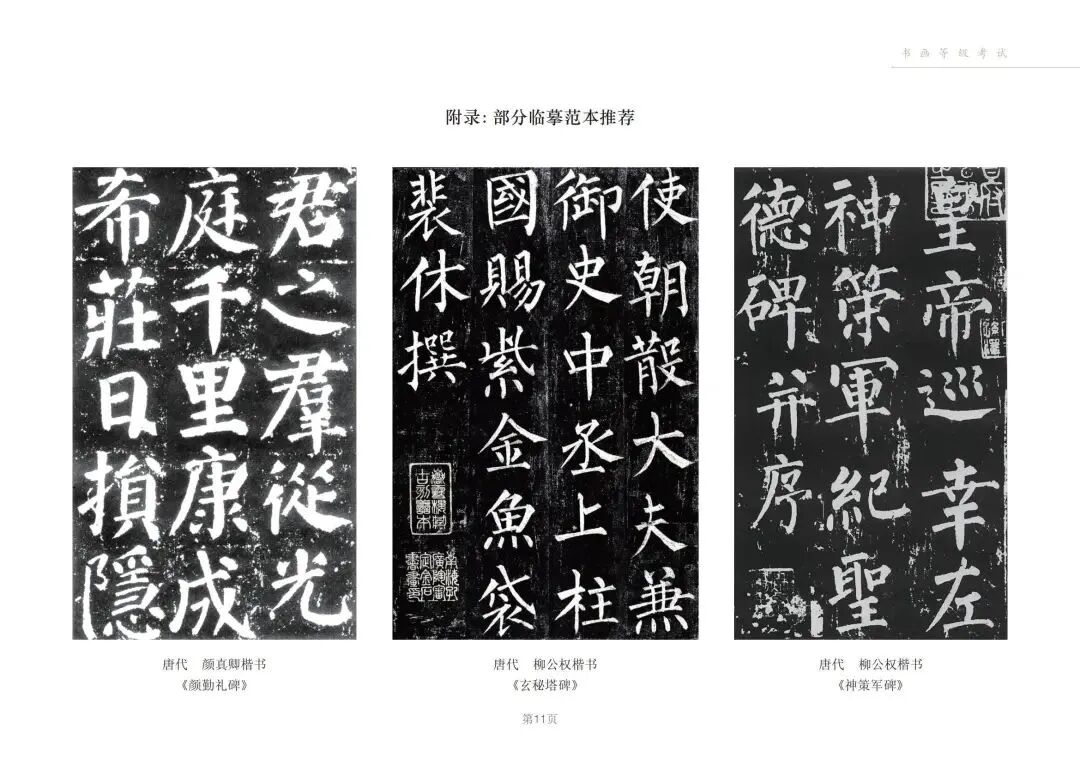 书画等级考试
附录：部分临摹范本推荐
君之羣從光
庭千里康成
希莊日損隱
唐代　颜真卿楷书
《颜勤礼碑》
使朝散大夫兼
御史中丞上柱
國賜紫金魚袋
裴休撰
唐代　柳公权楷书
《玄秘塔碑》
皇帝巡幸左
神策軍紀聖
德碑并序
唐代　柳公权楷书
《神策军碑》
第11页